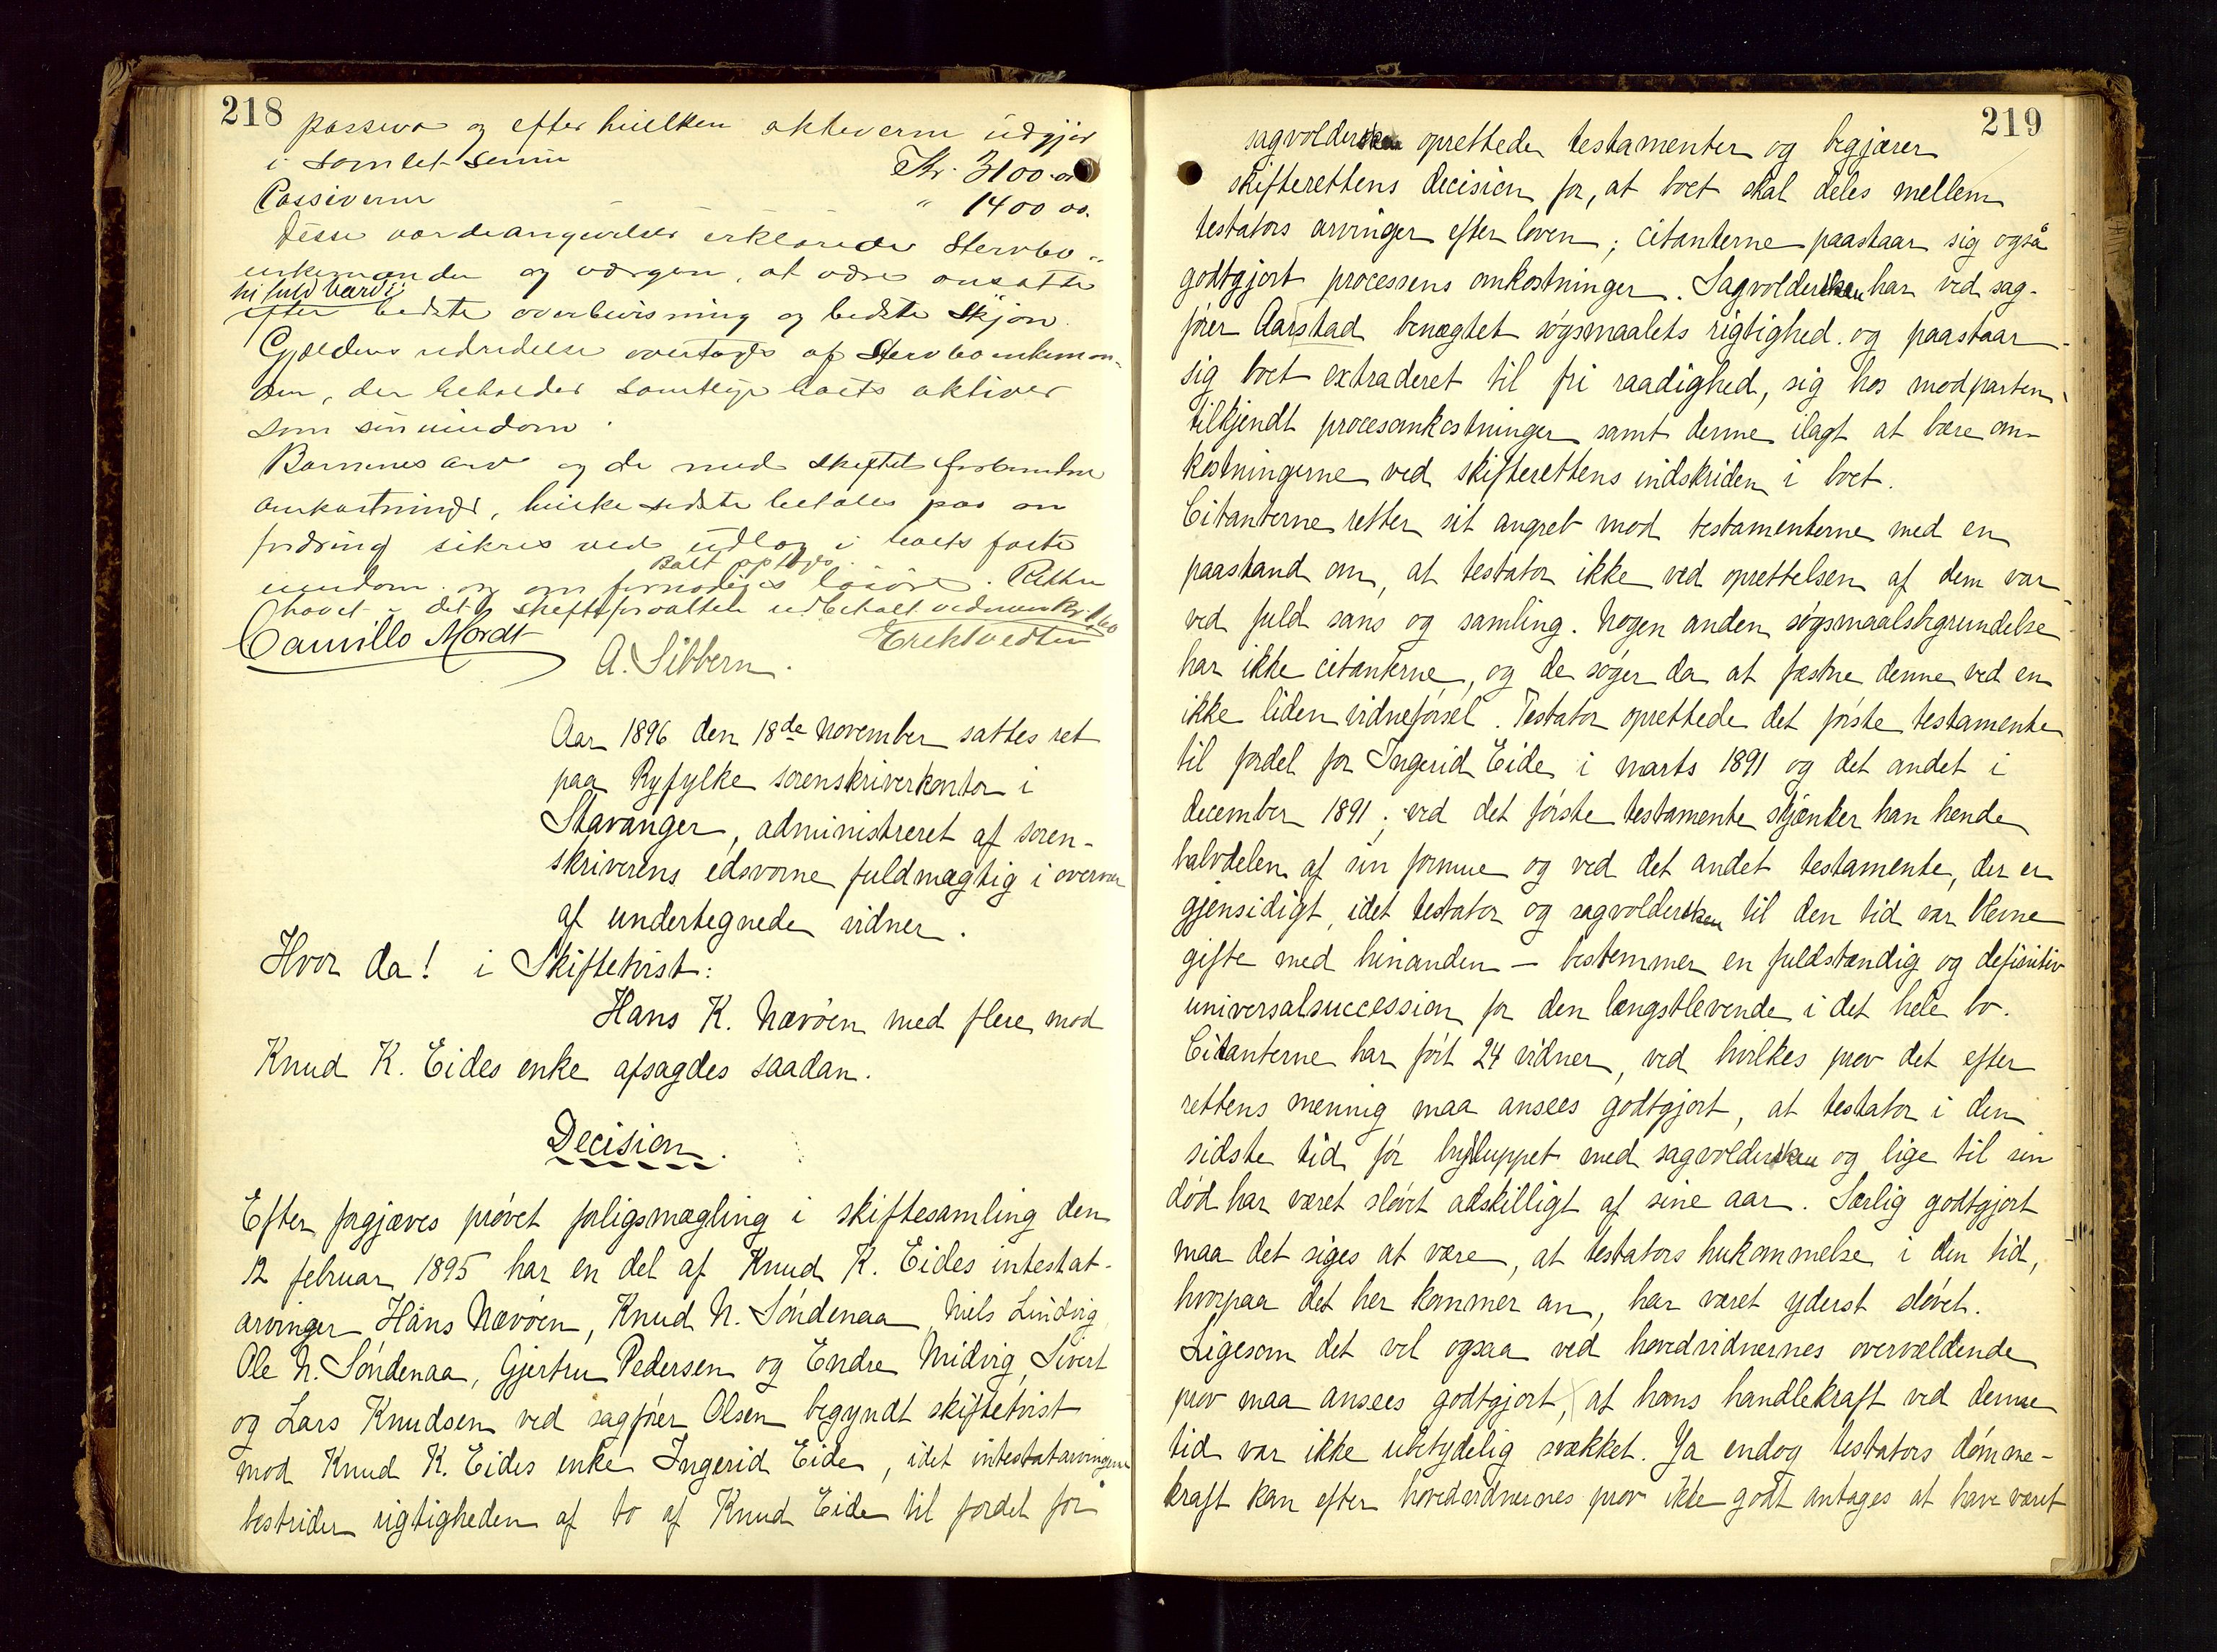 218
passiva og efter hvilken aktiverne udgjør
i samlet sum Kr. 3100.00
Passiverne " 1400 00.
Disse værdiangivelser erklærede Stervbo-
enkemanden og værgen, at være ansatte
til fuld værdi
efter bedste overbevisning og bedste Skjøn.
Gjældens udredelse overtoges af Stervboenkeman-
den, der beholder samtlige boets aktiver
som sin eiendom.
Børnenes arv og de med skiftet forbundne
omkostninger, hvilke sidste betales paa an
fordring sikres ved udlæg i boets faste
eiendom og om fornødiges løsøre. Retten
Bolt optoges
hævet
Camillo Mordt A. Sibbern. Erik Tvedten
Aar 1896 den 18de November sattes ret
paa Ryfylke sorenskriverkontor i
Stavanger, administreret af soren-
skriverens edsvorne fuldmægtig i overvær
af undertegnede vidner.
Hvor da! i Skiftetvist:
Hans K. Nævøen med flere mod
Knud K. Eides enke afsagdes saadan.
Decision.
Efter forgjæves prøvet forligsmægling i skiftesamling den
12 februar 1895 har en del af Knud K. Eides intestat-
arvinger Hans Nævøen, Knud N. Søndenaa, Niels Lindvig,
Ole N. Søndenaa, Gjertru Pedersen og Endre Nridvig, Sivert
og Lars Knudsen ved sagfører Olsen begyndt skiftetvist
mod Knud K. Eides enke Ingerid Eide, idet intestatarvingerne
bestrider rigtigheden af to af Knud Eide til fordel for
219
sagvoldersken oprettede testamenter og begjærer
skifterettens decision for, at boet skal deles mellem
testators arvinger efter loven; citanterne paastaar sig også
godtgjort processens omkostninger. Sagvoldersken har ved sag-
fører Aarstad benægtet søgsmaalets rigtighed og paastaar
sig boet extraderet til fri raadighed, sig hos modparten
tilkjendt procesomkostninger samt denne ilagt at bære om-
kostningerne ved skifterettens indskriden i boet.
Citanterne retter sit angreb mod testamenterne med en
paastand om, at testator ikke ved oprettelsen af dem var
ved fuld sans og samling. Nogen anden søgsmaalsbegrundelse
har ikke citanterne, og de søger da at fæstne denne ved en
ikke liden vidneførsel. Testator oprettede det første testamente
til fordel for Ingerid Eide i marts 1891 og det andet i
december 1891; ved det første testamente skjænker han hende
halvdelen af sin formue og ved det andet testamente, der er
gjensidigt, idet testator og sagvoldersken til den tid var blevne
gifte med hinanden – bestemmer en fuldstændig og definitiv
universalsuccession for den længstlevende i det hele bo.
Citanterne har ført 24 vidner, ved hvilkes prov det efter
rettens mennig maa ansees godtgjort, at testator i den
sidste tid før bryluppet med sagvoldersken og lige til sin
død har været sløvet adskilligt af sine aar. Særlig godtgjort
maa det siges at være, at testators hukommelse i den tid,
hvorpaa det her kommer an, har været yderst sløvet.
Ligesom det vel ogsaa ved hovedvidnernes overvældende
prov maa ansees godtgjort, at hans handlekraft ved denne
tid var ikke ubetydelig svækket. Ja endog testators dømme-
kraft kan efter hovedvidnernes prov ikke godt antages at have været